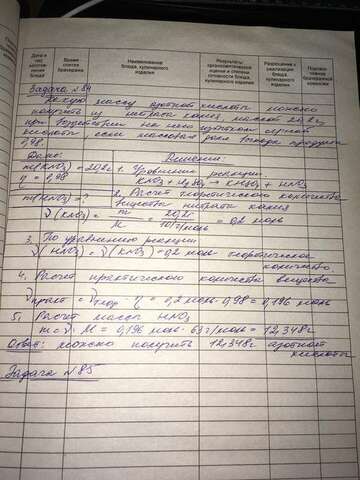 Дата и час изготовления блюда
Время снятия бракеража
Наименование блюда, кулинарного изделия
Результаты органолептической оценки и степени готовности блюда, кулинарного изделия
Разрешение к реализации блюда, кулинарного изделия
Подписи членов бракеражной комиссии
Задача №84
Какую массу азотной кислоты можно
получить из нитрата калия, массой 20,2 г,
при воздействии на него избытком серной
кислоты, если массовая доля выхода продукта
0,98.
Дано: Решение:
m(KNO3) = 20,2г 1. Уравнение реакции.
η = 0,98 KNO3 + H2SO4 → KHSO4 + HNO3
m(HNO3) = ? 2. Расчет теоретического количества
вещества нитрата калия
ν(KNO3) = m/M = 20,2г/101г/моль = 0,2 моль
3. По уравнению реакции
ν(HNO3) = ν(KNO3) = 0,2 моль теоретическое
количество
4. Расчет практического количества вещества
νпракт = νтеор · η = 0,2 моль · 0,98 = 0,196 моль
5. Расчет массы HNO3
m = ν · M = 0,196 моль · 63 г/моль = 12,348г
Ответ: можно получить 12,348г азотной
кислоты
Задача №85